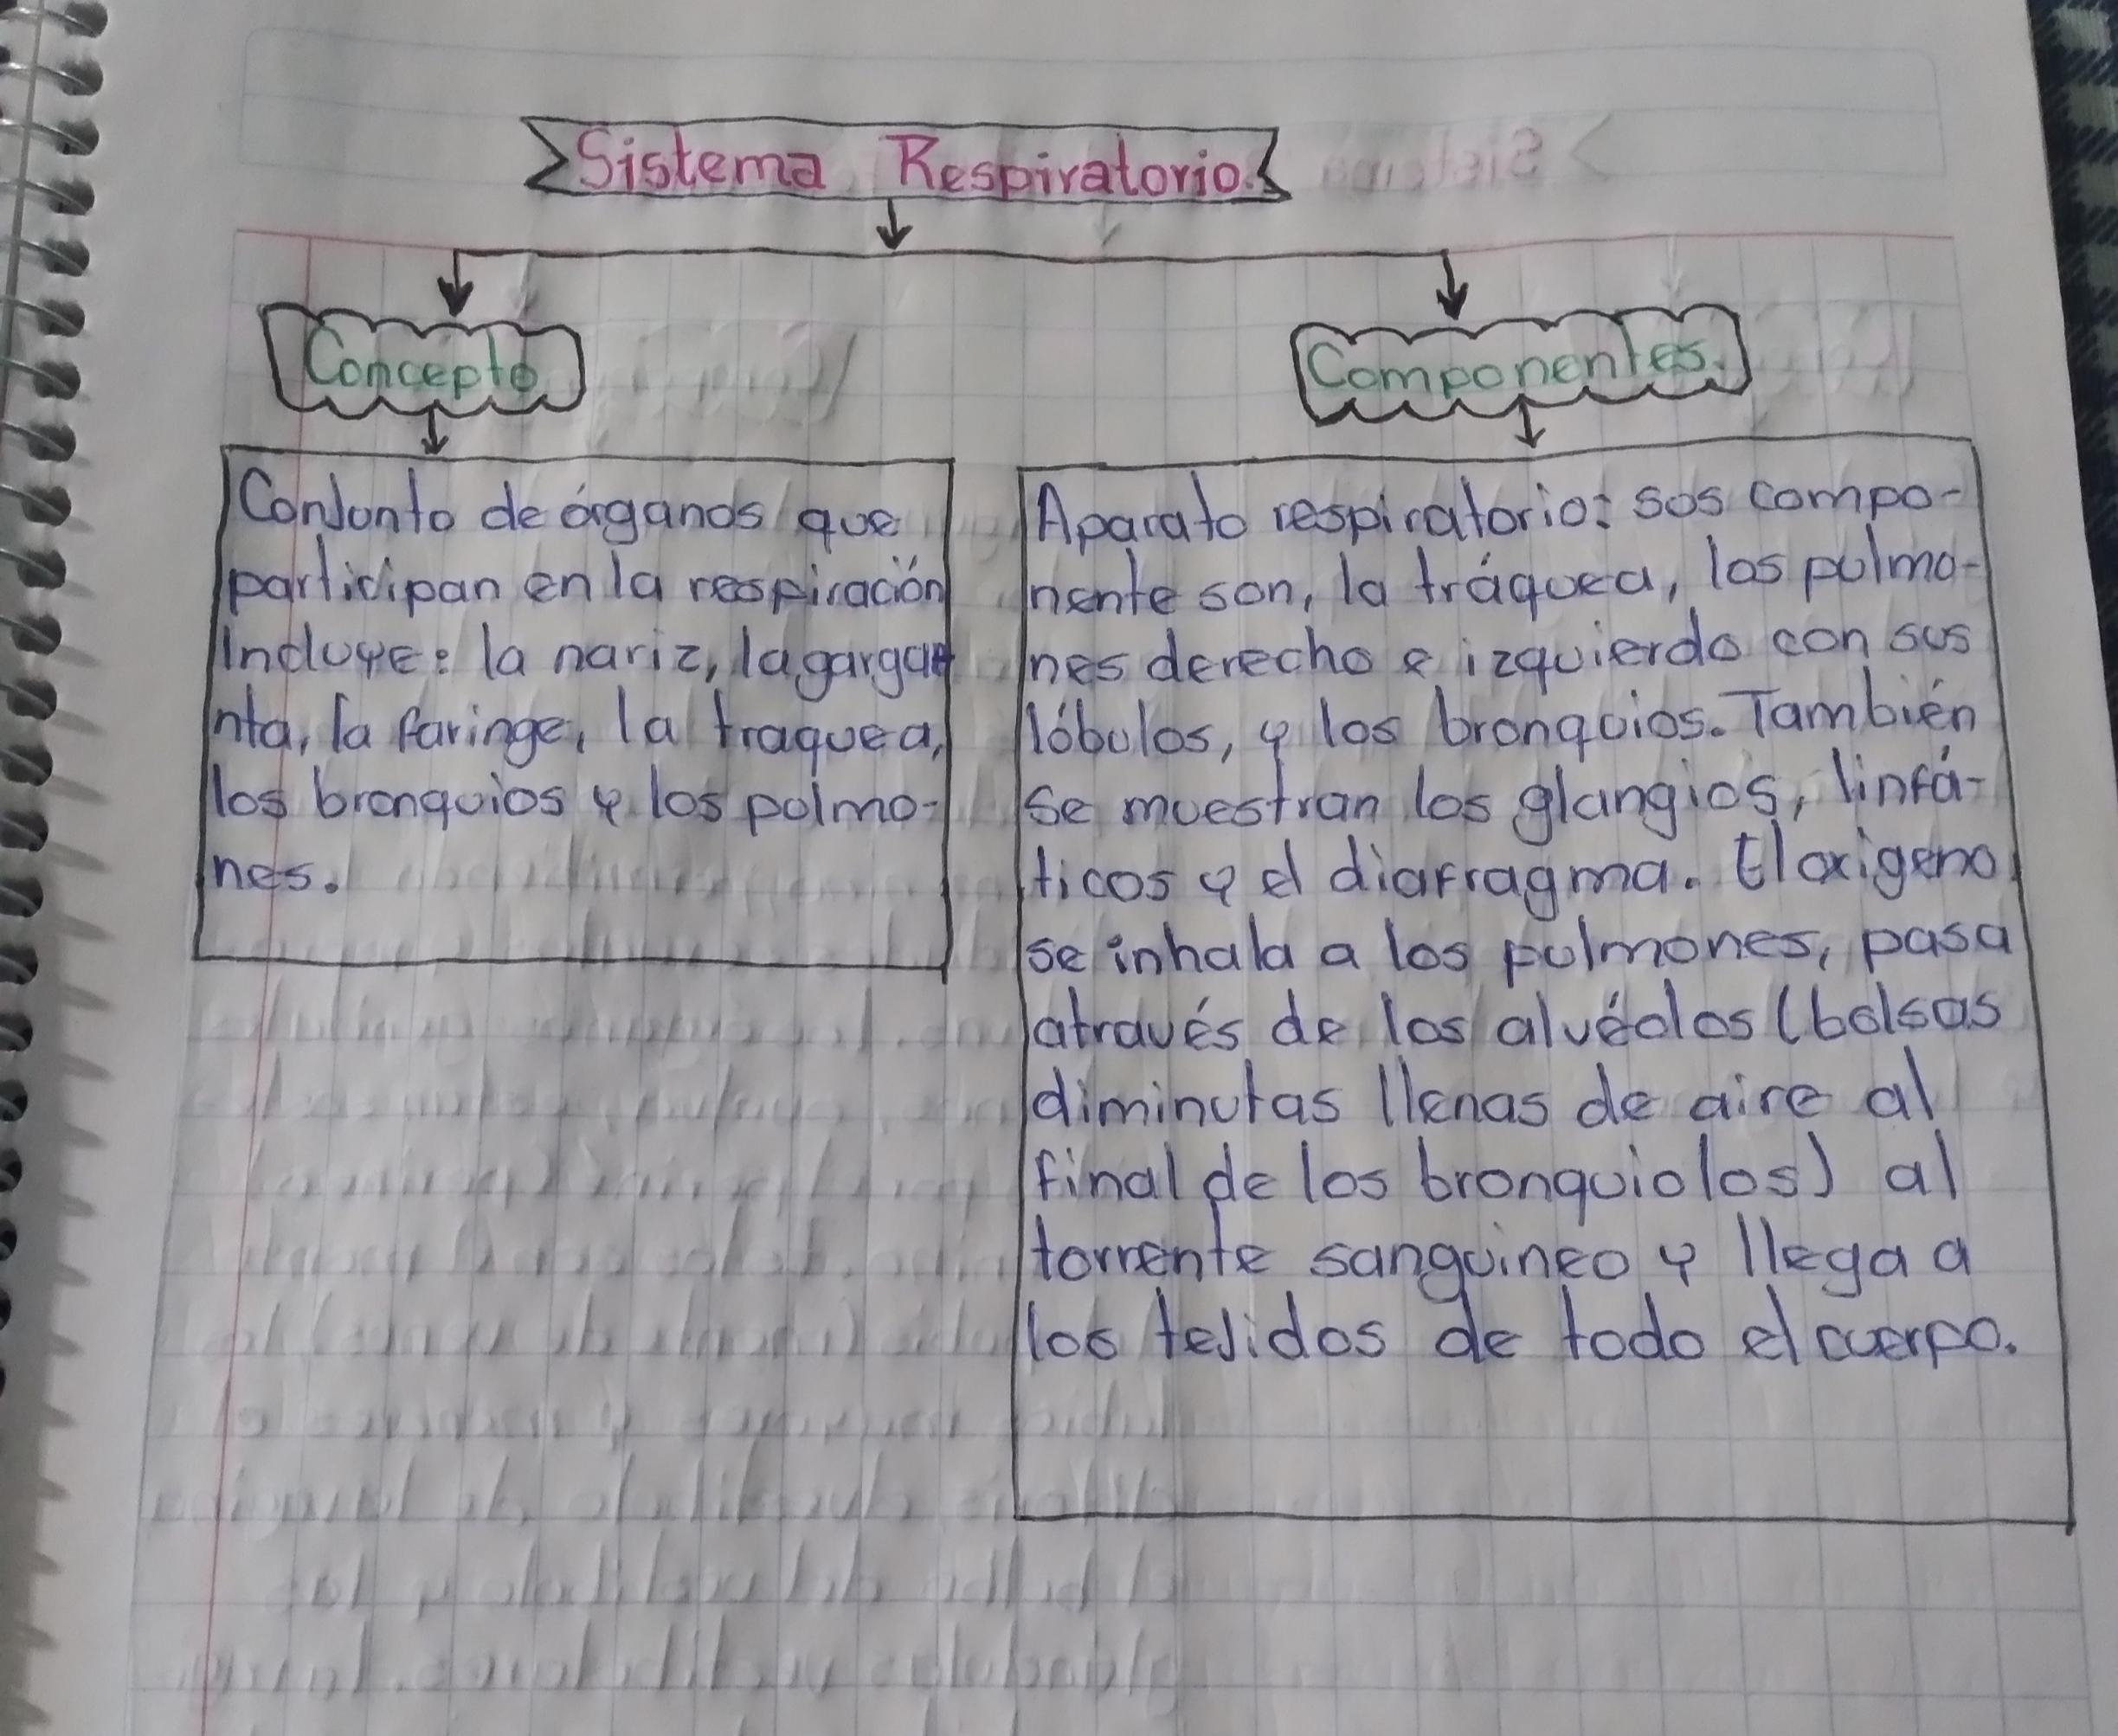 Sistema Respiratorio.
Concepto
Conjunto de órganos que
participan en la respiración
Incluye: la nariz, la gargan
nta, la faringe, la traquea,
los bronquios y los pulmo-
nes.
Componentes.
Aparato respiratorio: sus compo-
nente son, la tráquea, los pulmo-
nes derecho e izquierdo con sus
lóbulos, y los bronquios. También
se muestran los glangios, linfá-
ticos y el diafragma. El oxigeno
se inhala a los pulmones, pasa
através de los alvéolos (bolsas
diminutas llenas de aire al
final de los bronquiolos) al
torrente sanguineo y llega a
los tejidos de todo el cuerpo.